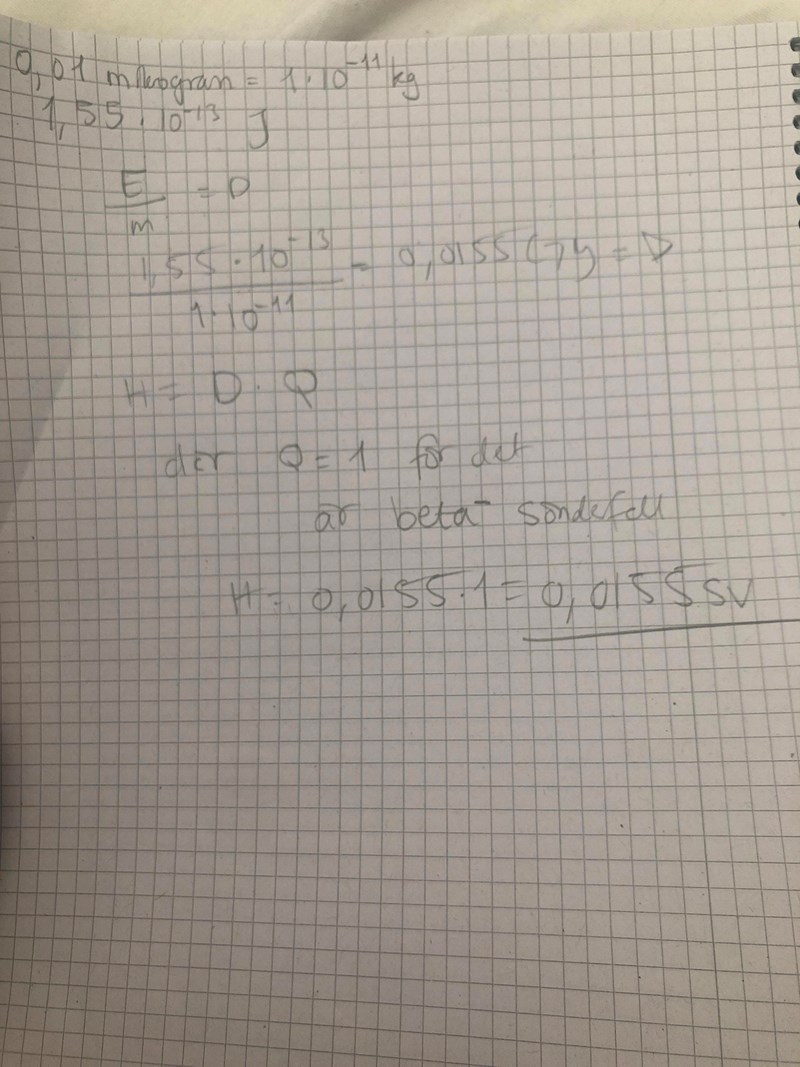 0,01 mikrogram = 1·10⁻¹¹ kg
1,55·10⁻¹³ J
E/m = D
1,55·10⁻¹³ / 1·10⁻¹¹ = 0,0155 Gy = D
H = D·Q
där Q = 1 för det
är beta⁻ sönderfall
H = 0,0155·1 = 0,0155 Sv